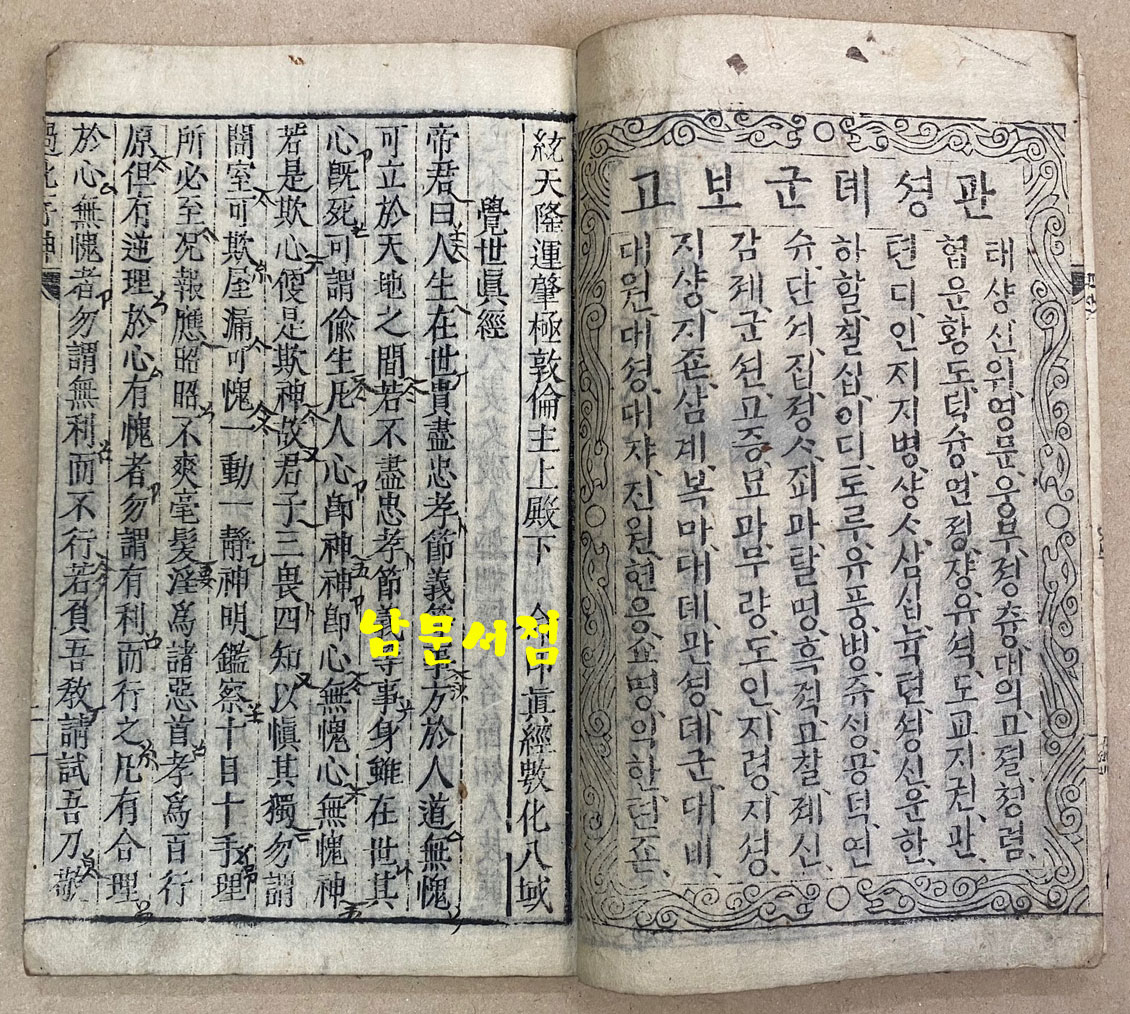 관셩뎨군보고
태샹신위,영문,웅부,졍츙,대의,고졀,쳥렴,
협운황도,덕슝,연졍쟝,유셕,도교지권,관
텬디인지지병,샹ᄉᆞ삼십뉵텬,셩신,운한,
하할,칠십이디,도류,유풍,병쥬,셩공덕,연
슈,단셔,집,졍ᄉᆞ,죄과달명,흑젹,고찰,졔신,
감졔,군션,고증묘과,무량도인,지령,지셩,
지샹,지죤,삼계,복마대뎨,관셩뎨군,대비,
대원,대셩,대쟈,진원,현응,쇼명,익한,텬죤,
統天隆運肇極敦倫主上殿下 命印眞經敷化八域
覺世眞經
帝君曰人生在世貴盡忠孝節義等事方於人道無愧
可立於天地之間若不盡忠孝節義等事身雖在世其
心旣死可謂偸生凡人心卽神神卽心無愧心無愧神
若是欺心便是欺神故君子三畏四知以愼其獨勿謂
闇室可欺屋漏可愧一動一靜神明鑑察十目十手理
所必至况報應昭昭不爽毫髮淫爲諸惡首孝爲百行
原但有逆理於心有愧者勿謂有利而行之凡有合理
於心無愧者勿謂無利而不行若負吾敎請試吾刀敬
過化存神
남문서점